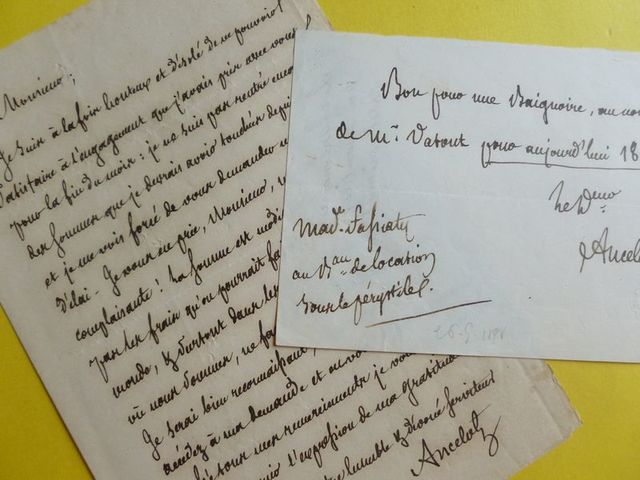 Monsieur;
Je suis à la fois honteux et désolé de ne pouvoir
satisfaire à l'engagement que j'avais pris avec vous
pour la fin du mois : je ne suis pas rentré
des sommes que je devrais avoir touchées
et je me vois forcé de vous demander
délai. Je vous en prie, Monsieur,
complaisante! La somme est
par les frais qu'on pourrait
monde, & surtout dans les
où nous sommes, ne
Je serai bien reconnaissant,
accédez à ma demande et
tous mes remerciements je vous
l'expression de ma gratitude
humble & dévoué serviteur
Ancelot
Bon pour une Baignoire, au nom
de Mr. Vatout pour aujourd'hui 18
Ancelot
Made.
au Bau. de location
sous le péristyle.